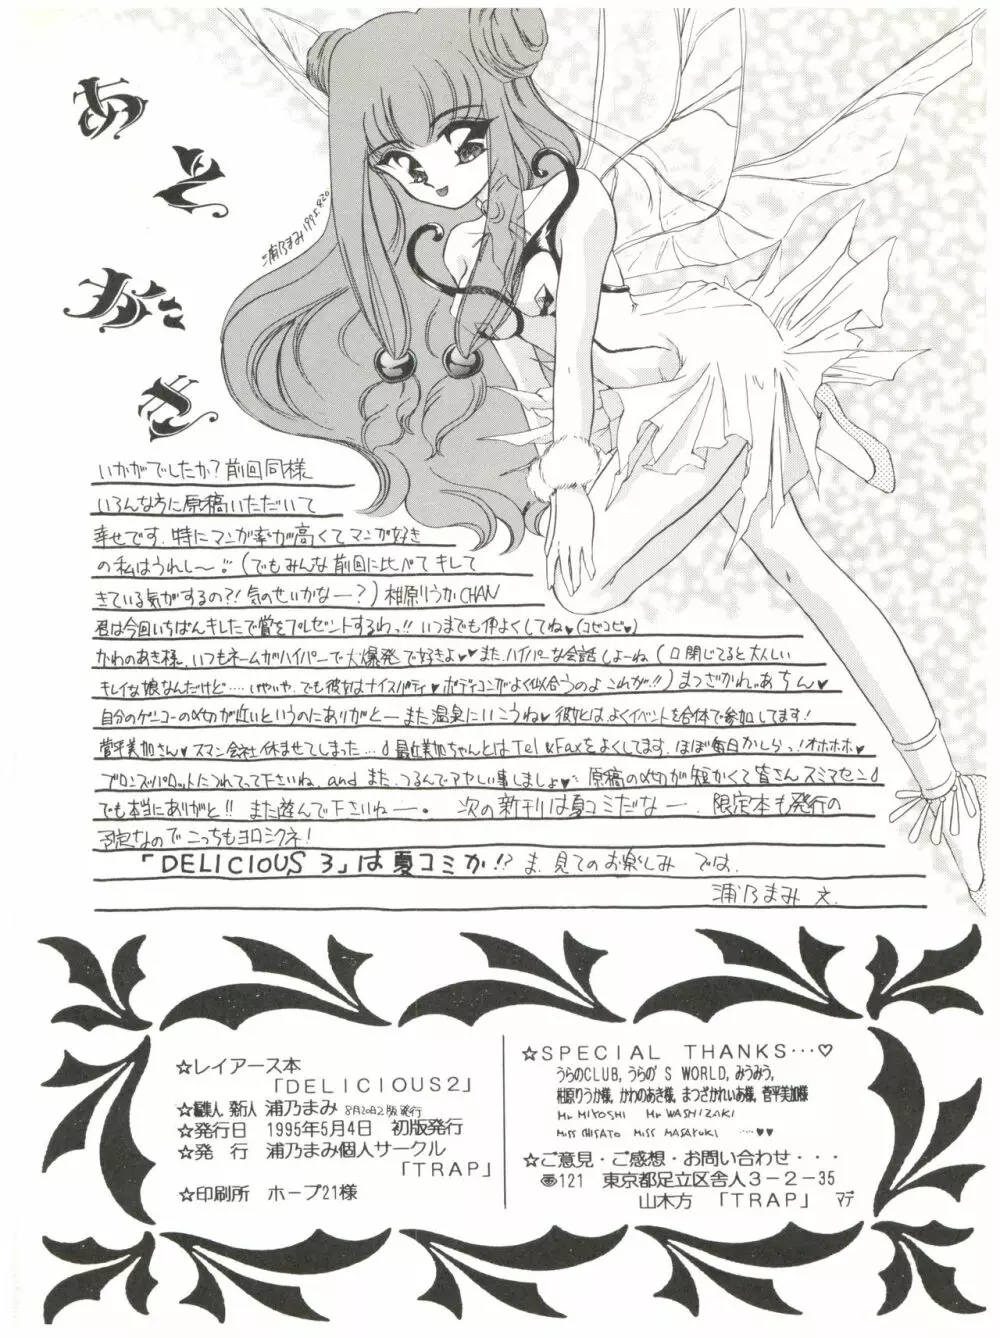 あとがき
浦乃まみ 1995.4.20
いかがでしたか？前回同様
いろんな方に原稿いただいて
幸せです。特にマンガ率が高くてマンガ好き
の私はうれし〜（でもみんな前回に比べてキレて
きている気がするの?!気のせいかなー？）相原りうかCHAN
君は今回いちばんキレたで賞をプレゼントするわっ!!いつまでも仲よくしてね♥(コピコピ♥)
かわのあき様、いつもネームがハイパーで大爆発で好きよ♥♥また、ハイパーな会話しよーね（口閉じてると大人しい
キレイな娘なんだけど…いやいや、でも彼女はナイスバディ♥ボディコンがよく似合うのよこれが!!）まつざかれいあちん♥
自分のゲンコーの〆切が近いというのにありがとーまた温泉にいこうね♥彼女とは、よくイベントを合体で参加してます！
菅平美加さん♥スマン会社休ませてしまった…最近美加ちゃんとはTel＆Faxをよくしてます。ほぼ毎日かしらっ！オホホホ♥
ブロンズパロットにつれてって下さいね。andまた、つるんでアヤしい事しましょ♥原稿の〆切が短かくて皆さんスミマセン
でも本当にありがと!!また遊んで下さいねー。次の新刊は夏コミだなー。限定本も発行の
予定なのでこっちもヨロシクネ！
「DELICIOUS 3」は夏コミか!?ま、見てのお楽しみ では。
浦乃まみ
☆レイアース本
「DELICIOUS2」
☆編集人 発行人 浦乃まみ 8月20日2版発行
☆発行日 1995年5月4日 初版発行
☆発 行 浦乃まみ個人サークル
「TRAP」
☆印刷所 ホープ21様
☆SPECIAL THANKS…♡
うらのCLUB, うらの'S WORLD, みうみう,
相原りうか様, かわのあき様, まつざかれいあ様, 菅平美加様
Mr MIYOSHI Mr WASHIZAKI
Miss CHISATO Miss MASAYUKI ……♥♥
☆ご意見・ご感想・お問い合わせ・・・
〠121 東京都足立区舎人3-2-35
山木方 「TRAP」 マデ